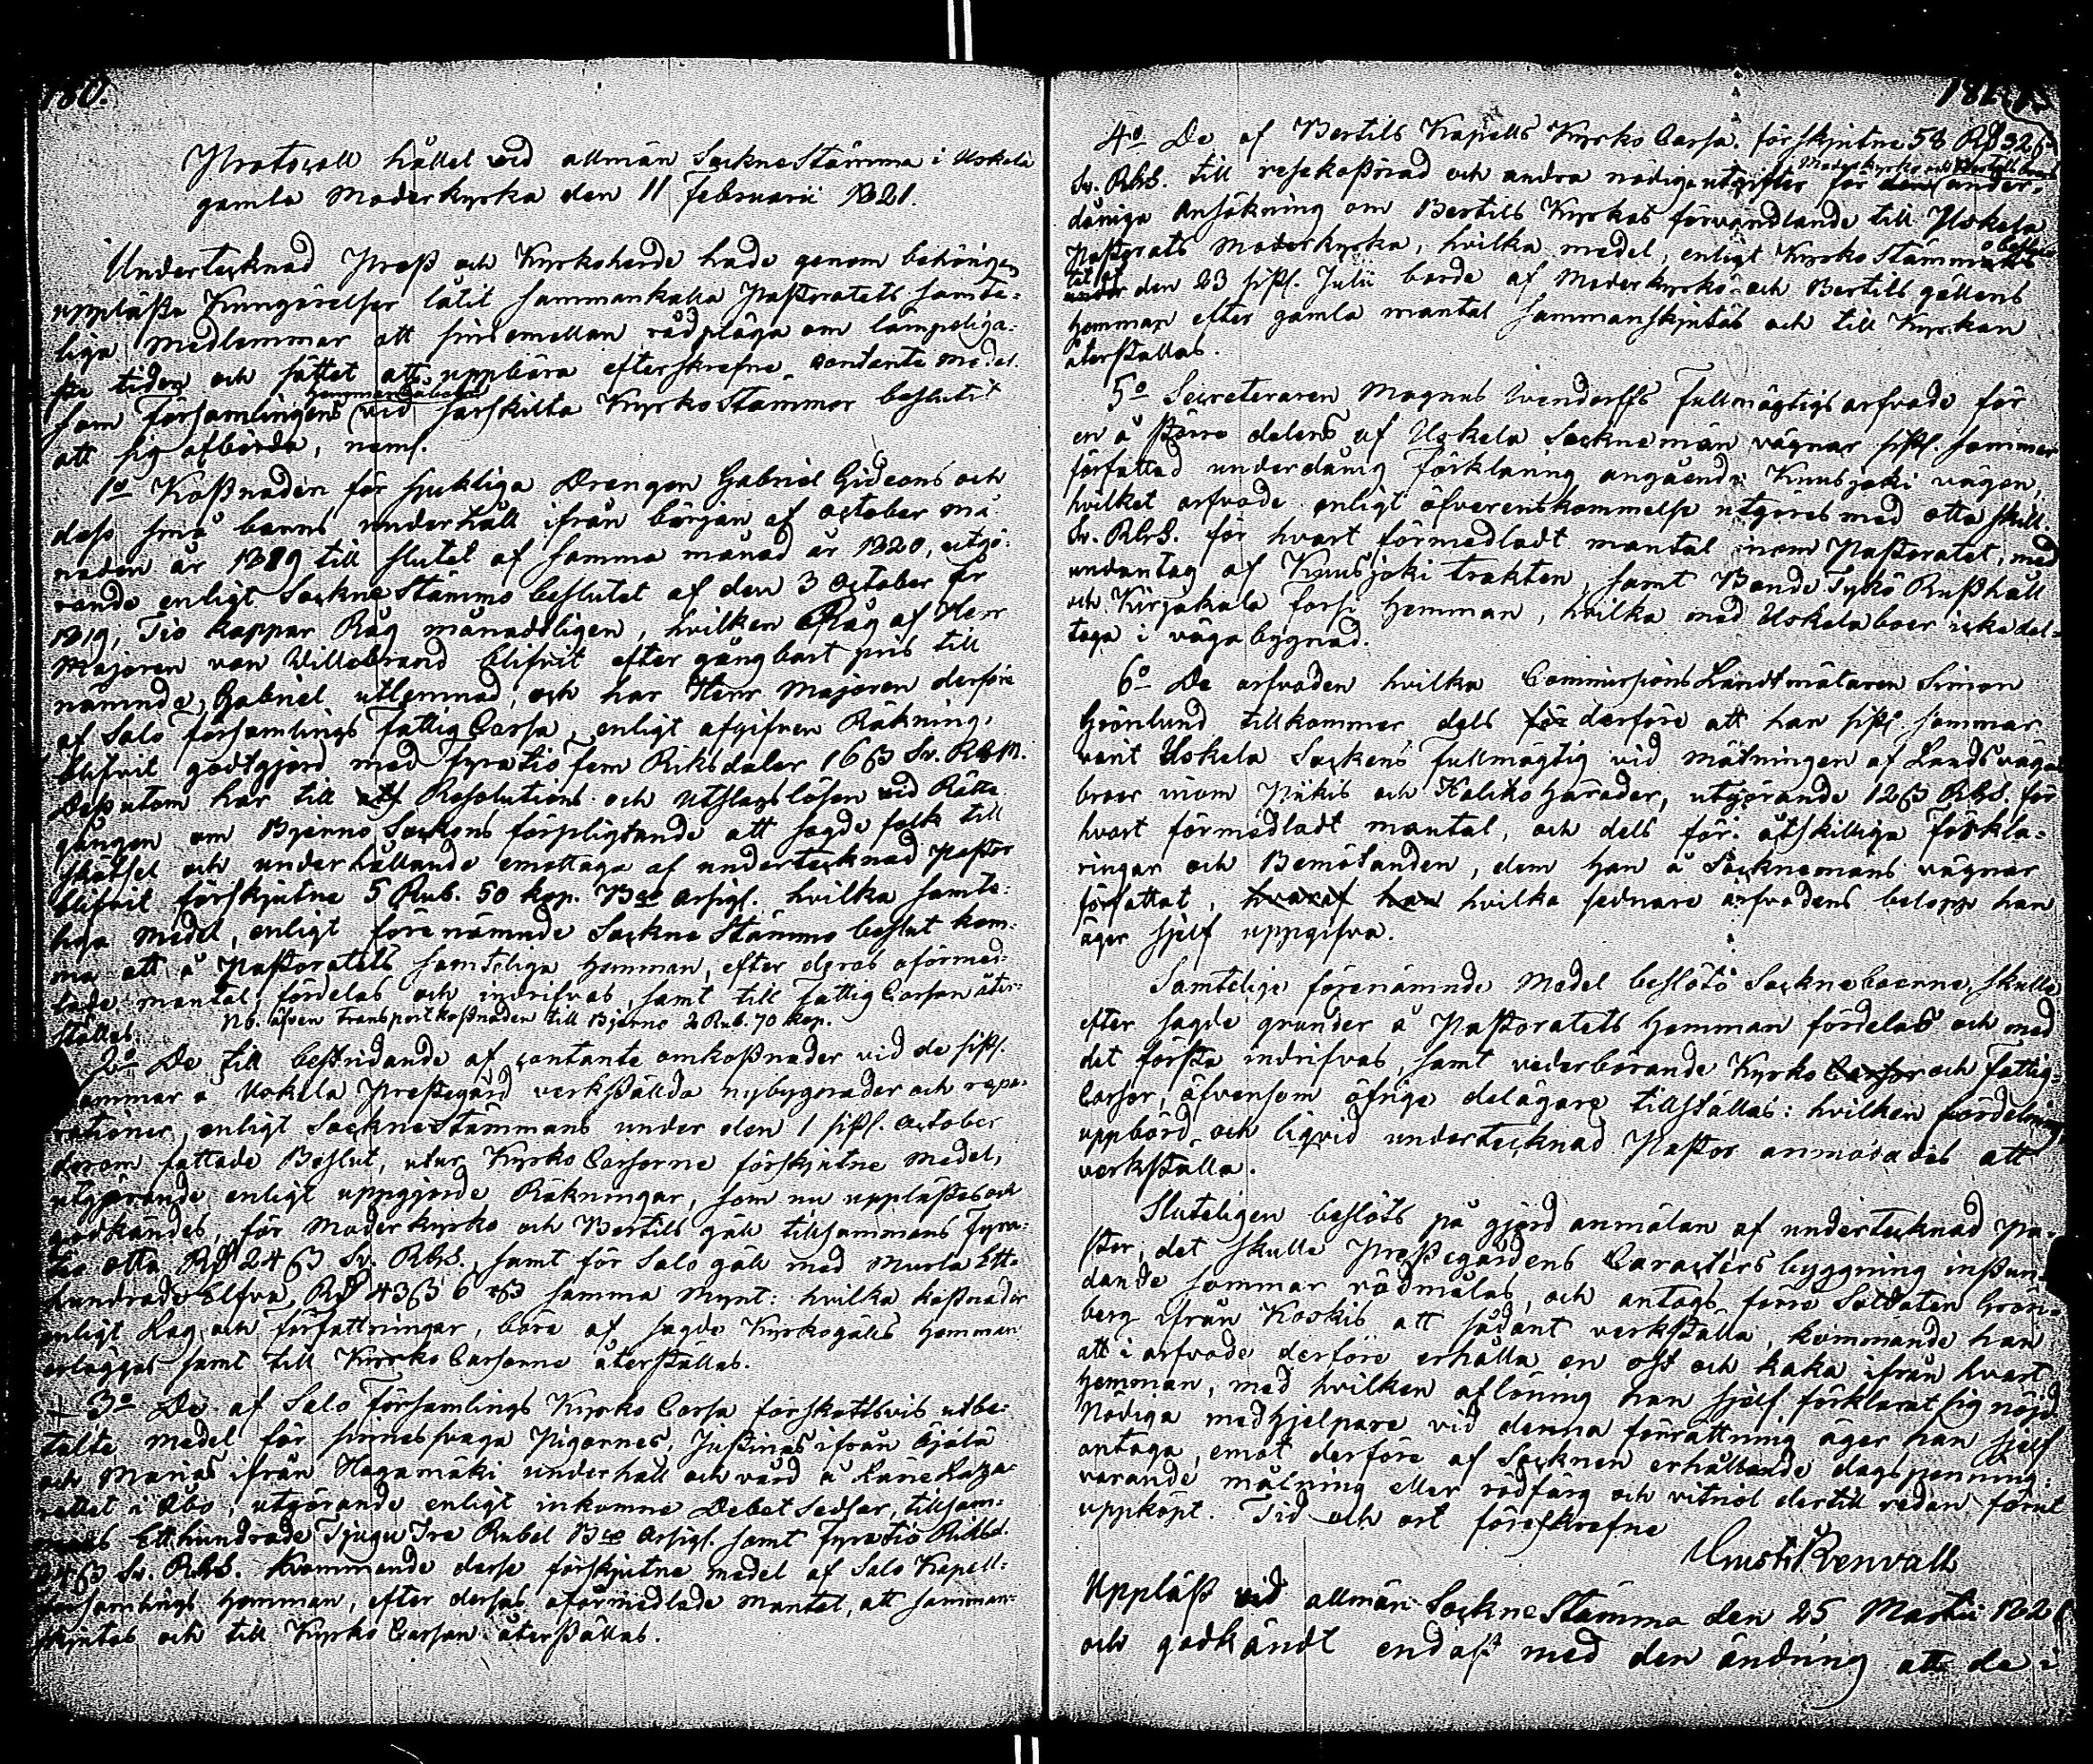 180.
Protocoll hållet vid allmän SockneStämma i Uskela
gamla Moderkyrka den 11 Februarii 1821.
Undertecknad Prost och Kyrkoherde hade genom behörigen
uppläste Kungörelser låtit sammankalla Pastoratets samte-
liga medlemmar att sinsemellan rådpläga om lämpeliga-
ste tiden och sättet att uppbära efterskrefne contante medel
som Församlingens vid särskilta KyrkoStämmor beslutit
att sig afbörda, neml.
1o Kostnaden för sjukliga Drengen Gabriel Gideons och
dess små barns underhåll ifrån början af October må-
naden år 1819 till slutet af samma månad år 1820, utgö-
rande enligt SockneStämmo beslutet af den 3 October år
1819, Tio kappar Råg månadteligen, hvilken Råg af Herr
Majoren von Willebrand blifvit efter gångbart pris till
nämnde Gabriel utlemnad, och har Herr Majoren derföre
af Salo församlings Fattig Cassa, enligt afgifven Räkning,
blifvit godtgjord med fyratio fem Riksdaler 16 ß Sv. RGM.
Dessutom har till Resolutions och Utslagslösen vid Rätte-
gången om Bjerno Sockens förpligtande att sagde folk till
skötsel och underhållande emottaga af undertecknad Pastor
blifvit förskjutne 5 Rub. 50 kop. Bco Assigl. hvilka samte-
liga medel, enligt förenämnde Sockne Stämmo beslut kom-
ma att å Pastoratets samteliga hemman, efter deras oförmed-
lade mantal, fördelas och indrifvas, samt till Fattig Cassan åter-
ställas. Nb. äfven transportkostnaden till Bjerno 2 Rub. 70 kop.
2o De till bestridande af contante omkostnader vid de sistl.
sommar å Uskela Prestegård verkställda nybygnader och repa-
rationer, enligt SockneStämmans under den 1 sistl. October
derom fattade Beslut, utur Kyrko Cassorne förskjutne medel,
utgörande enligt uppgjorde Räkningar, som nu upplästes och
godkändes, för Moderkyrko och Bertils gäll tillsammans Fyra-
tio otta Rd 24 ß Sv. RGS. samt för Salo gäll med Murla Ett-
hundrade Elfva Rd 43 ß 6 samma Mynt: hvilka kostnader
enligt Lag och författningar, böra af sagde Kyrkogälls hemman
erläggas samt till Kyrko Cassorne återställas.
+ 3o De af Salo Församlings Kyrko Cassa förskottsvis utbe-
talte medel för sinnessvaga Pigornes, Justinas ifrån
och Marias ifrån Hagamäki underhåll och vård å Läne Laza-
rettet i Åbo, utgörande enligt inkomne Debet Sedlar, tillsam-
mans Etthundrade Tjugu Tre Rubel Bco Assigl. samt Fyratio Riksd.
24 ß Sv. RGS. Kommande desse förskjutne medel af Salo Kapell-
församlings hemman, efter dersas oförmedlade mantal, att samman-
skjutas och till Kyrko Cassan återställas.
4o De af Bertils Kapells Kyrko Cassa förskjutne 58 Rd 32 ß
Sv. RGS. till resekostnad och andra nödiga utgifter för under-
dåniga Ansökning om Bertils Kyrkas förvandlande till Uskela
Pastorats Moderkyrka, hvilka medel, enligt KyrkoStämmans beslut
den 23 sistl. Julii borde af Moderkyrko och Bertils gällens
hemman efter gamla mantal sammanskjutas och till Kyrkan
återställas.
5o Secreteraren Magnus Wendorffs Fullmägtigs arfvode för
en å större delens af Uskela Socknemän vägnar sistl. sommar
författad underdånig förklaring angående Kuusjoki vägen,
hvilket arfvode enligt öfverenskommelse utgöres med otta skill.
Sv. RGS. för hvart förmedladt mantal inom Pastoratet, med
undantag af Kuusjoki trakten, samt Bonde Tykö Rusthåll
och Kirjakala Forss hemman, hvilka med Uskela boer icke del-
taga i vägabygnad.
6o De arfvoden hvilka CommissionsLandtmätaren Simon
Grönlund tillkommer dels derföre att han sistl. sommar
varit Uskela Sockens fullmägtig vid mätningen af Landsväga
broar inom Piikis och Haliko härader, utgörande 12 ß RGS. för
hvart förmedladt mantal, och dels för åtskilliga förkla-
ringar och Bemötanden, dem han å Socknemäns vägnar
författat, hvaraf han hvilka sednare arfvodens belopp han
äger sjelf uppgifva.
Samtelige förenämnde Medel beslöto Socknebo­erne, skulle
efter sagde grunder å Pastoratets hemman fördelas och med
det första indrifvas, samt vederbörande Kyrko Cassor och Fattig-
Cassor, äfvensom öfrige delägare tillställas: hvilken fördelning,
uppbörd och liqvid undertecknad Pastor anmodades att
verkställa.
Sluteligen beslöts på gjord anmälan af undertecknad Pa-
stor, det skulle Prestegårdens Caracters byggning instun-
dande sommar rödmålas, och antogs förre Soldaten Grön-
berg ifrån Koskis att sådant verkställa, kommande han
att i arfvode derföre erhålla en ost och kaka ifrån hvart
hemman, med hvilken aflöning han sjelf förklarat sig nöjd.
Nödiga medhjelpare vid denna förrättning äger han sjelf
antaga, emot derföre af Socknen erhållande dagspenning:
varande målning eller rödfärg och vitriol dertill redan förut
uppköpt. Tid och ort föreskrefne
Renvall
Uppläst vid allmän SockneStämma den 25 Martii 1821
och godkändt endast med den ändring att de i